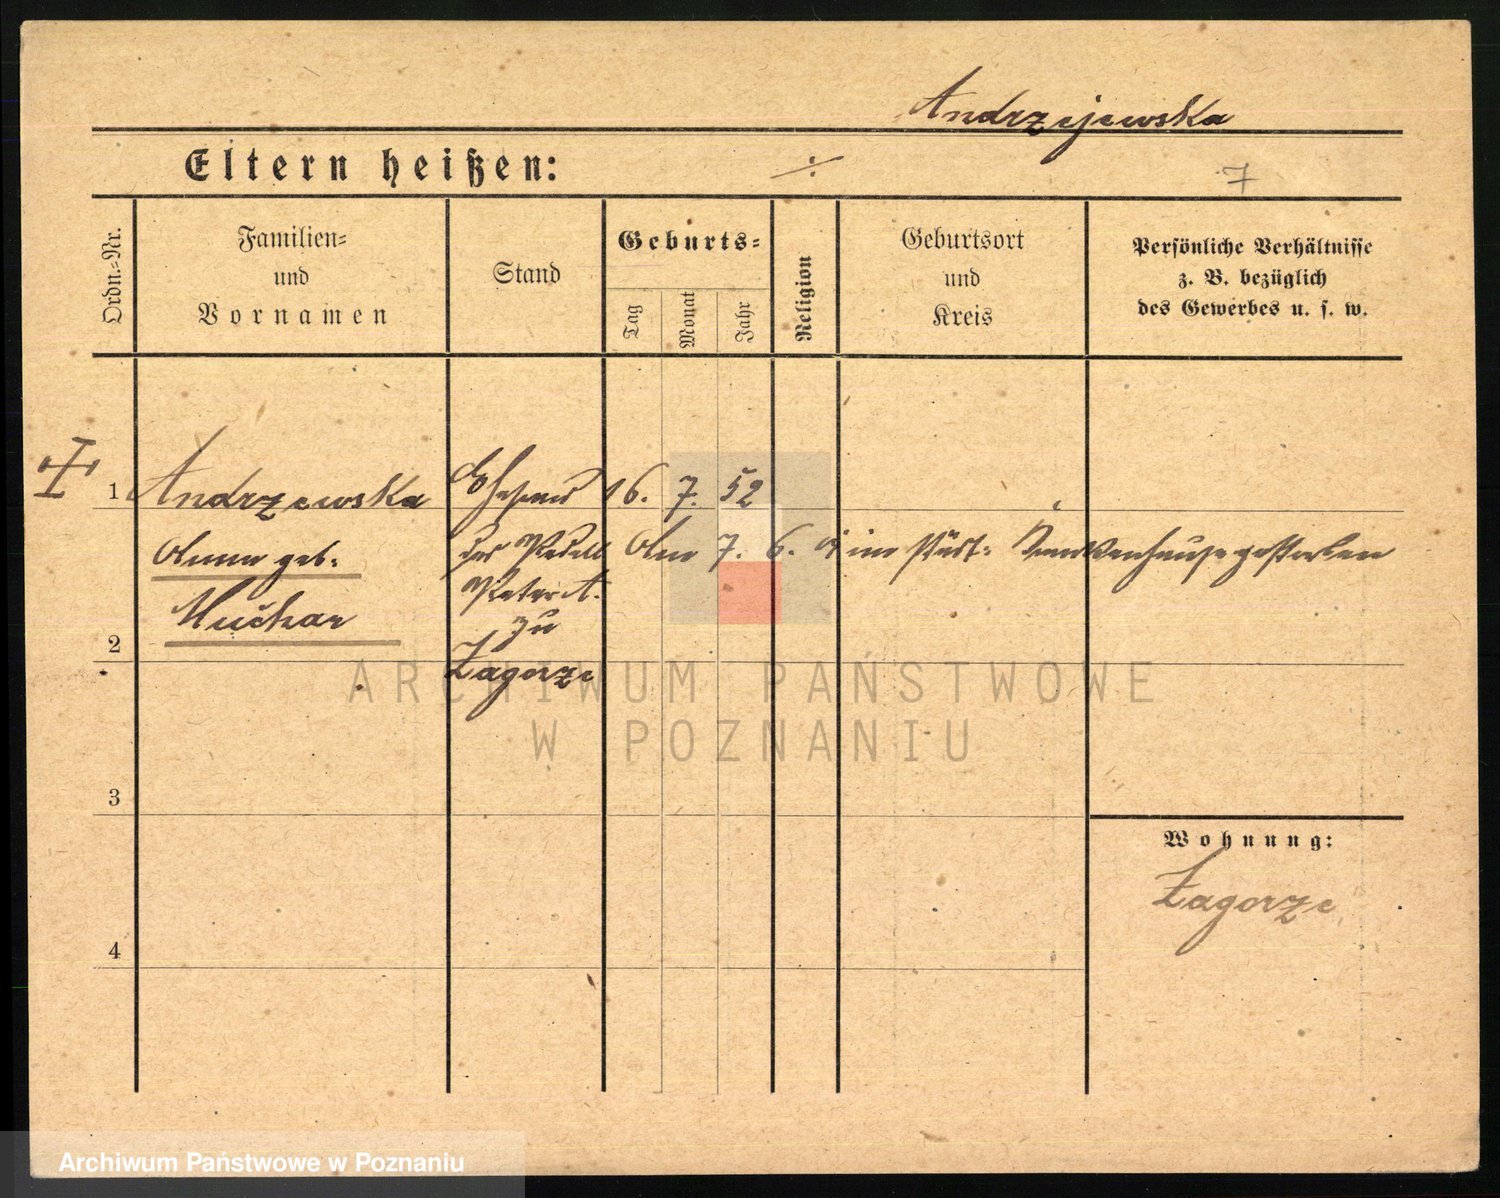 Andrzejewska
Eltern heißen: ÷
7
Ordn.-Nr.
Familien-
und
Vornamen
Stand
Geburts-
Tag
Monat
Jahr
Religion
Geburtsort
und
Kreis
Persönliche Verhältnisse
z. B. bezüglich
des Gewerbes u. s. w.
1 Andrzewska Ehefrau 16. 7. 52
Anna geb. des Pedell Am 7. 6. im Städt. Krankenhause gestorben
Muchar Peter A.
zu
2
Zagorze
3
Wohnung:
Zagorze
4
ARCHIWUM PAŃSTWOWE
W POZNANIU
Archiwum Państwowe w Poznaniu